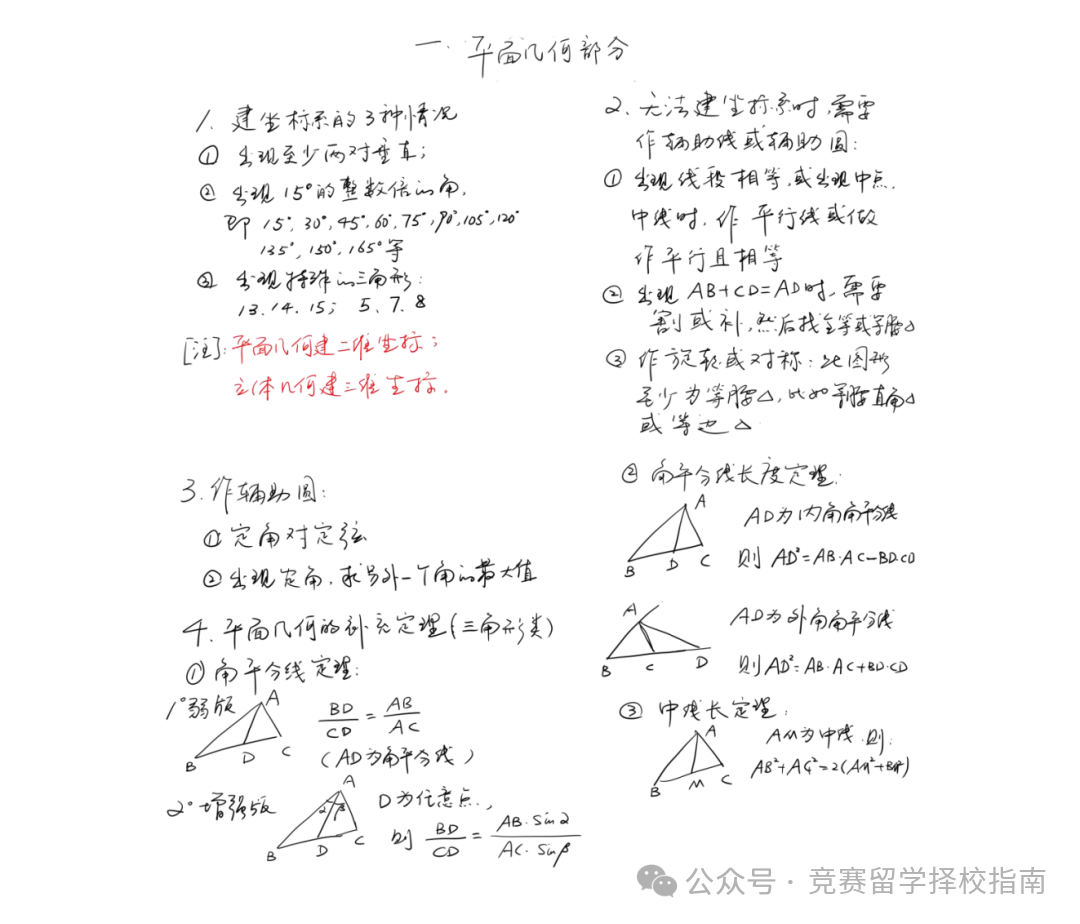 一. 平面几何部分
1. 建坐标系的3种情况
① 出现至少两对垂直;
② 出现15°的整数倍的角,
即 15°, 30°, 45°, 60°, 75°, 90°, 105°, 120°
135°, 150°, 165° 等
③ 出现特殊的三角形:
13. 14. 15; 5. 7. 8
[注]: 平面几何建二维坐标;
立体几何建三维坐标.
2. 无法建坐标系时, 需要
作辅助线或辅助圆:
① 出现线段相等, 或出现中点.
中线时, 作平行线或做
作平行且相等
② 出现 AB+CD=AD时, 需要
割或补, 然后找全等或等腰△
③ 作旋转或对称: 此图形
至少为等腰△, 比如等腰直角△
或等边△
3. 作辅助圆:
① 定角对定弦
② 出现定角, 求另外一个角的最大值
4. 平面几何的补充定理(三角形类)
① 角平分线定理:
1° 弱版
A
B
D
C
BD/CD = AB/AC
(AD为角平分线)
2° 增强版
A
α β
B
D
C
D为任意点,
则 BD/CD = AB·sinα/AC·sinβ
② 角平分线长度定理:
A
B
D
C
AD为内角角平分线
则 AD²=AB·AC-BD·CD
A
B
C
D
AD为外角角平分线
则AD²=AB·AC+BD·CD
③ 中线长定理:
A
B
M
C
AM为中线, 则:
AB²+AC²=2(AM²+BM²)
公众号 · 竞赛留学择校指南